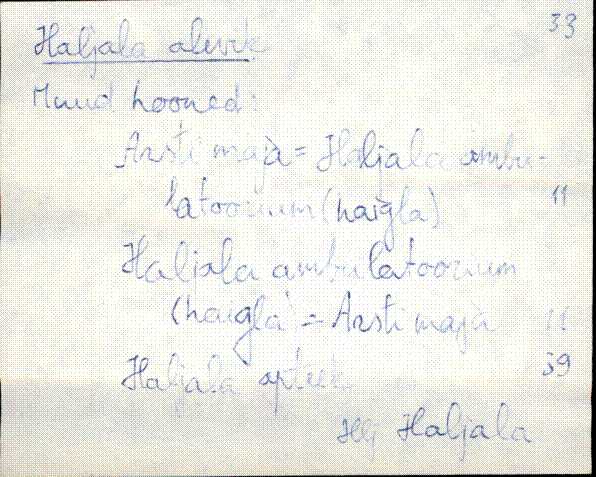 33
Haljala alevik
Muud hooned:
Arsti maja = Haljala ambu-
latoorium (haigla) 11
Haljala ambulatoorium
(haigla) = Arsti maja 11
Haljala apteek 39
Hlj Haljala